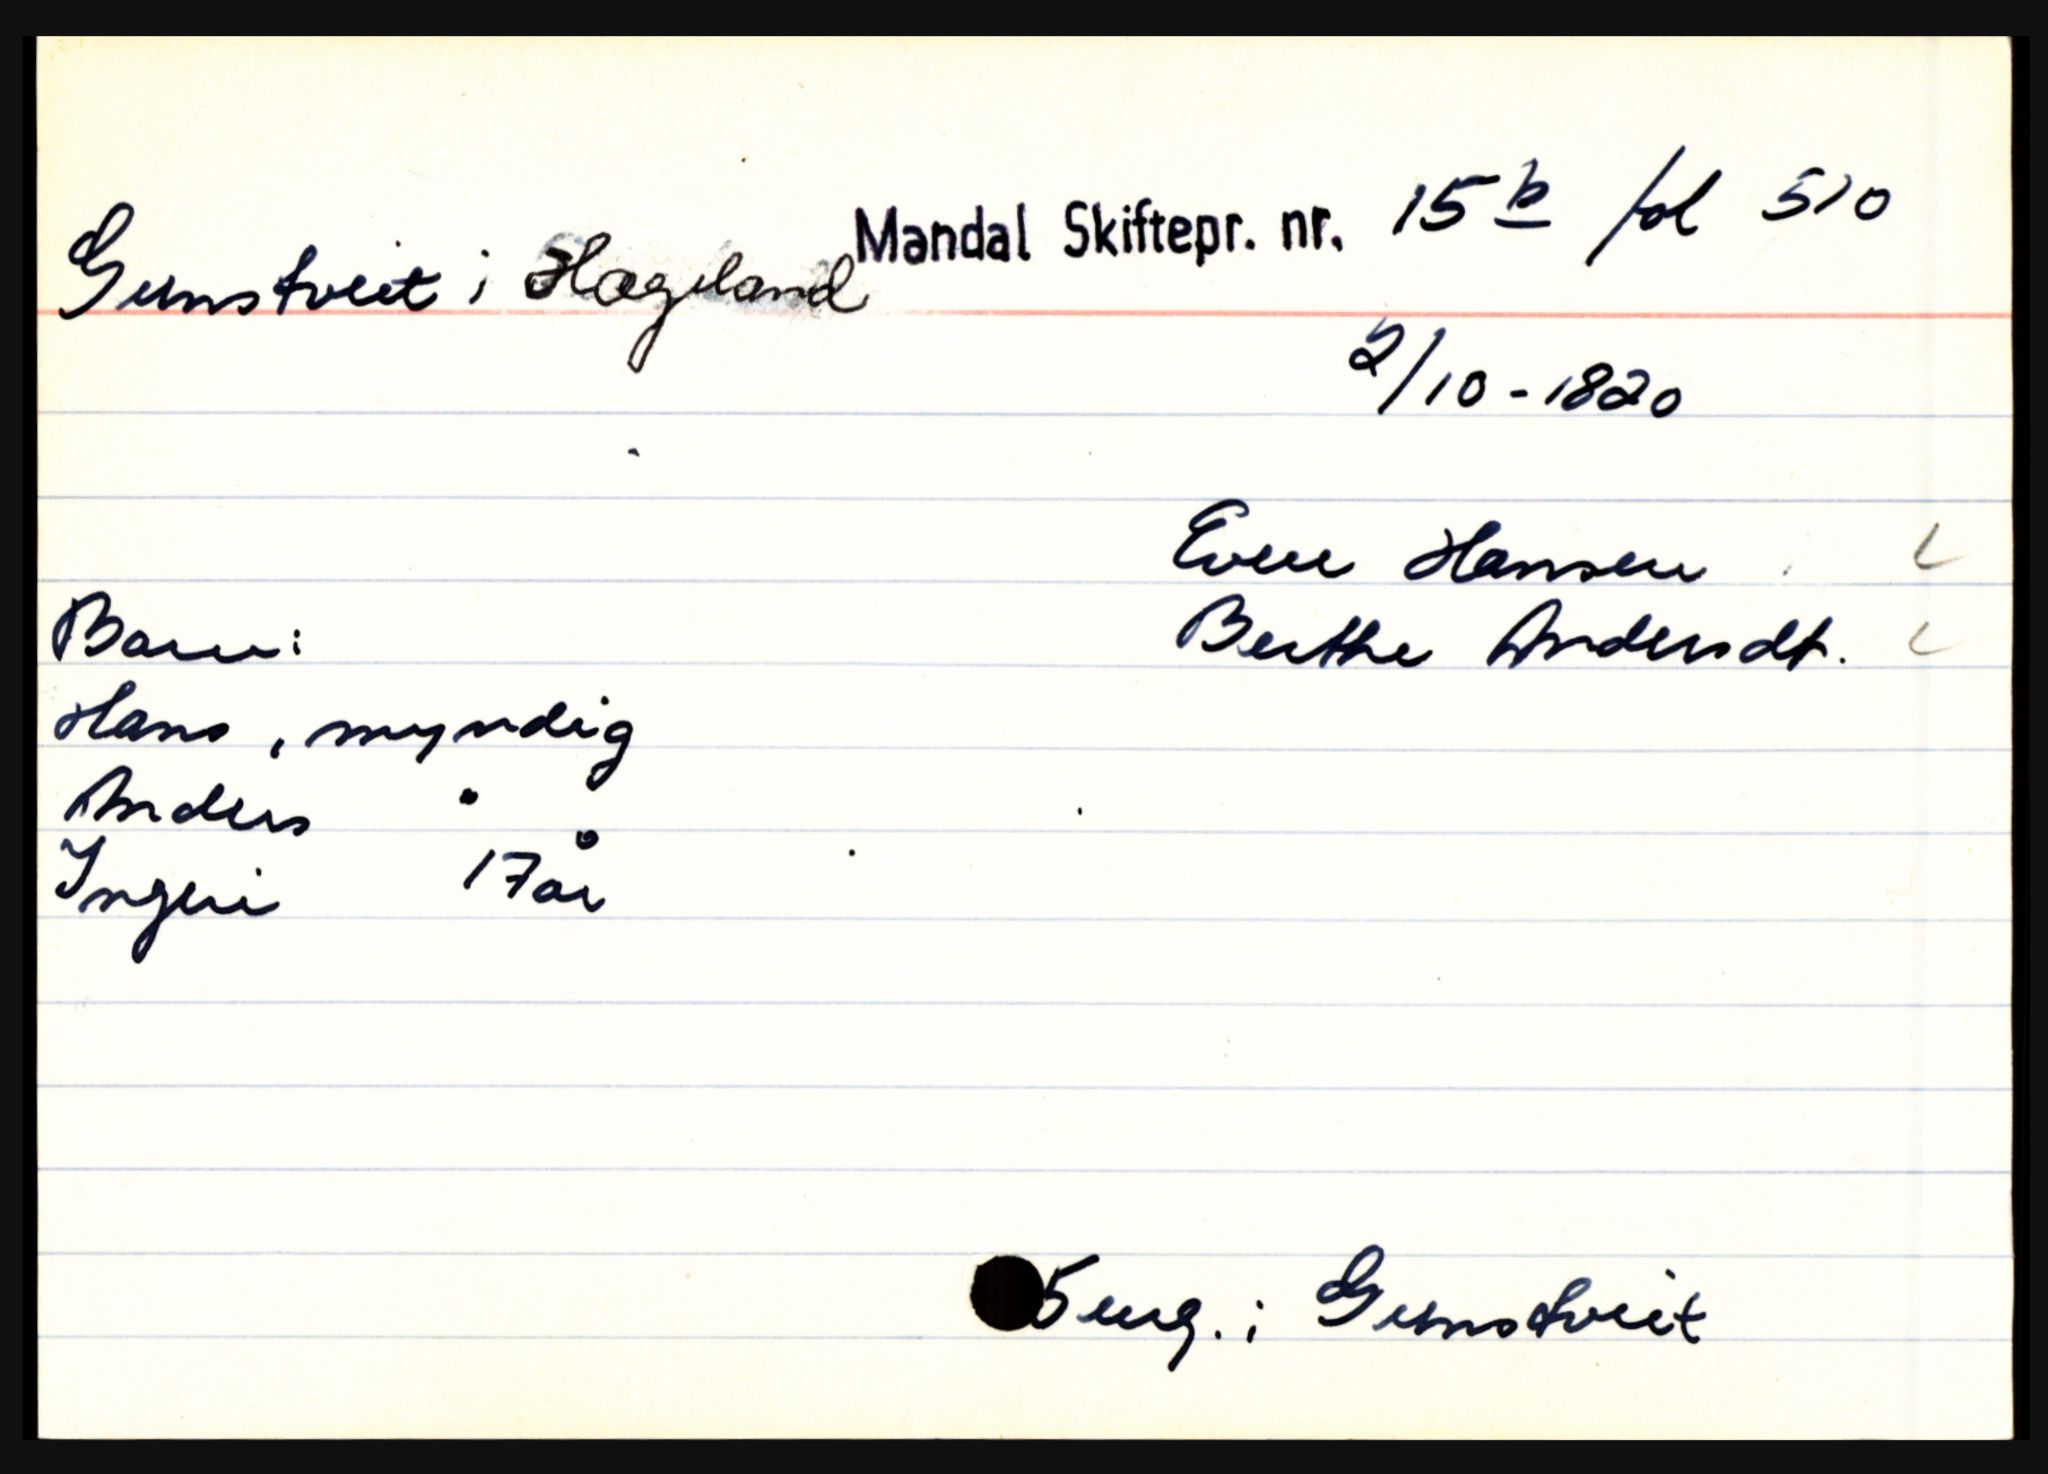 Mandal Skiftepr. nr. 15 b fol 510
Gunstveit i Hægeland
2/10 - 1820
Even Hansen
Barn: Berthe Andersdt.
Hans, myndig
Anders "
Ingeri 17 år
5 eng. i Gunstveit